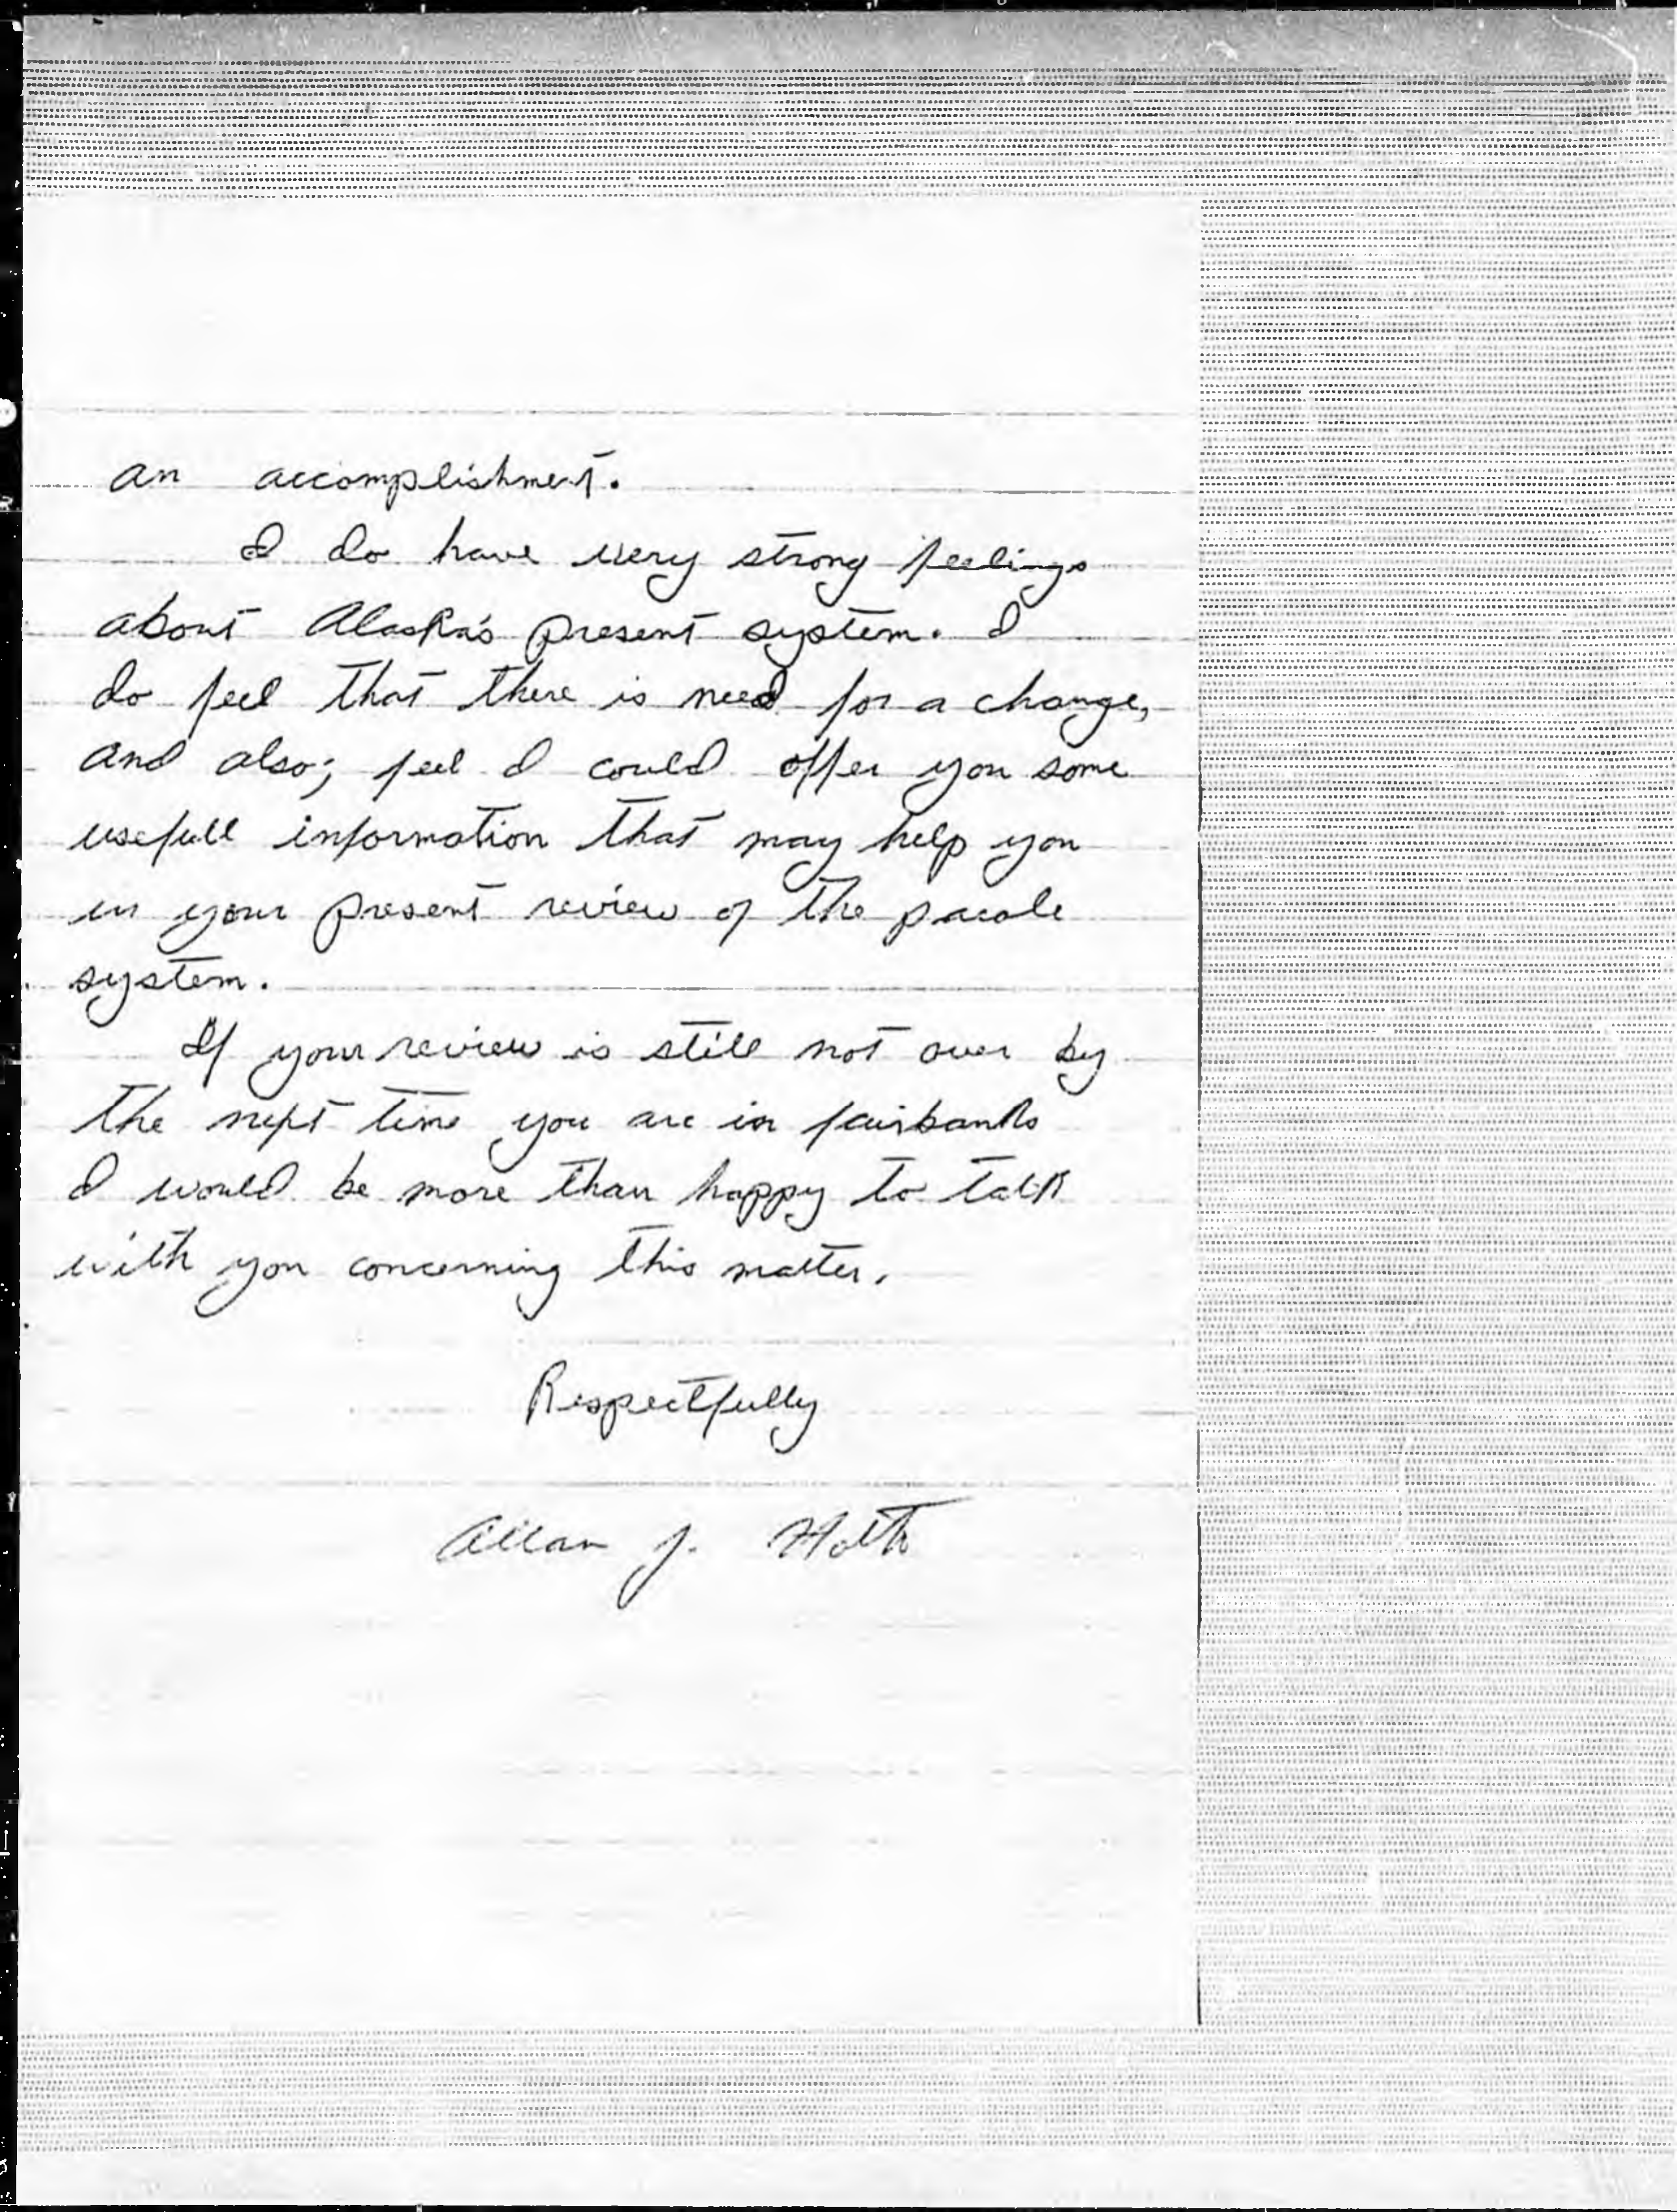 an accomplishment.
I do have very strong feelings
about Alaska's present system. I
do feel that there is need for a change,
and also; feel I could offer you some
usefull information that may help you
in your present review of the parole
system.
If your review is still not over by
the next time you are in fairbanks
I would be more than happy to talk
with you concerning this matter.
Respectfully
Allan J. Holth